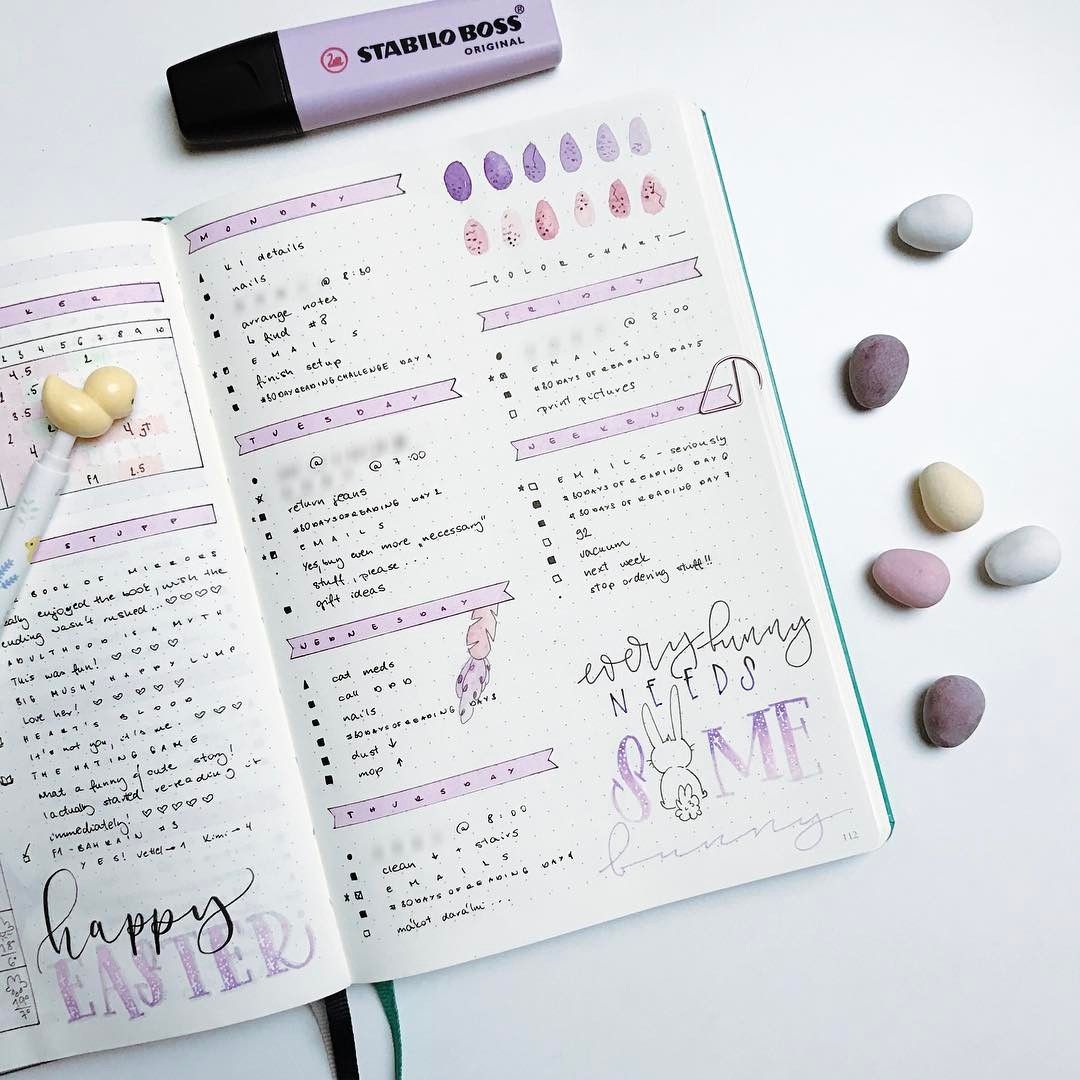 STABILO BOSS®
ORIGINAL
KER
2 3 4 5 6 7 8 9 10
4.5
2
.5
3.5
2
4
4 jt
F1
2.5
STUFF
BOOK OF MIRRORS
really enjoyed the book, with the
ending wasn't rushed... ♡♡♡♡
ADULTHOOD IS A MYTH
This was fun! ♡♡♡♡
BIG MUSHY HAPPY LUMP
Love her! ♡♡♡♡♡
HEART'S BLOOD
It's not you, it's me. ♡♡♡
THE HATING GAME
what a funny & cute story!
I actually started re-reading it
immediately! ♡♡♡♡♡
F1 - BAHRAIN #3
YES! Vettel → 1 Kimi → 4
happy
EASTER
MONDAY
k1 details
nails
@ 8:30
arrange notes
↳ find #8
EMAILS
finish setup
#30DAYREADINGCHALLENGE DAY 1
TUESDAY
@
@ 7:00
return jeans
#30DAYSOFREADING DAY 2
EMAILS
Yes, buy even more „necessary"
stuff, please...
gift ideas
WEDNESDAY
cat meds
call DPD
nails
#30DAYSOFREADING DAY3
dust ↓
mop ↑
THURSDAY
@ 8:00
clean ↓ + stairs
EMAILS
#30DAYS OF READING DAY4
mákot darálni...
—COLOR CHART—
FRIDAY
@ 8:00
EMAILS
#30DAYS OF READING DAY5
print pictures
WEEKEND
EMAILS - seriously
#30DAYS OF READING DAY 6
#30DAYS OF READING DAY 7
G2
vacuum
next week
stop ordering stuff!!
everybunny
NEEDS
SOME
bunny
112